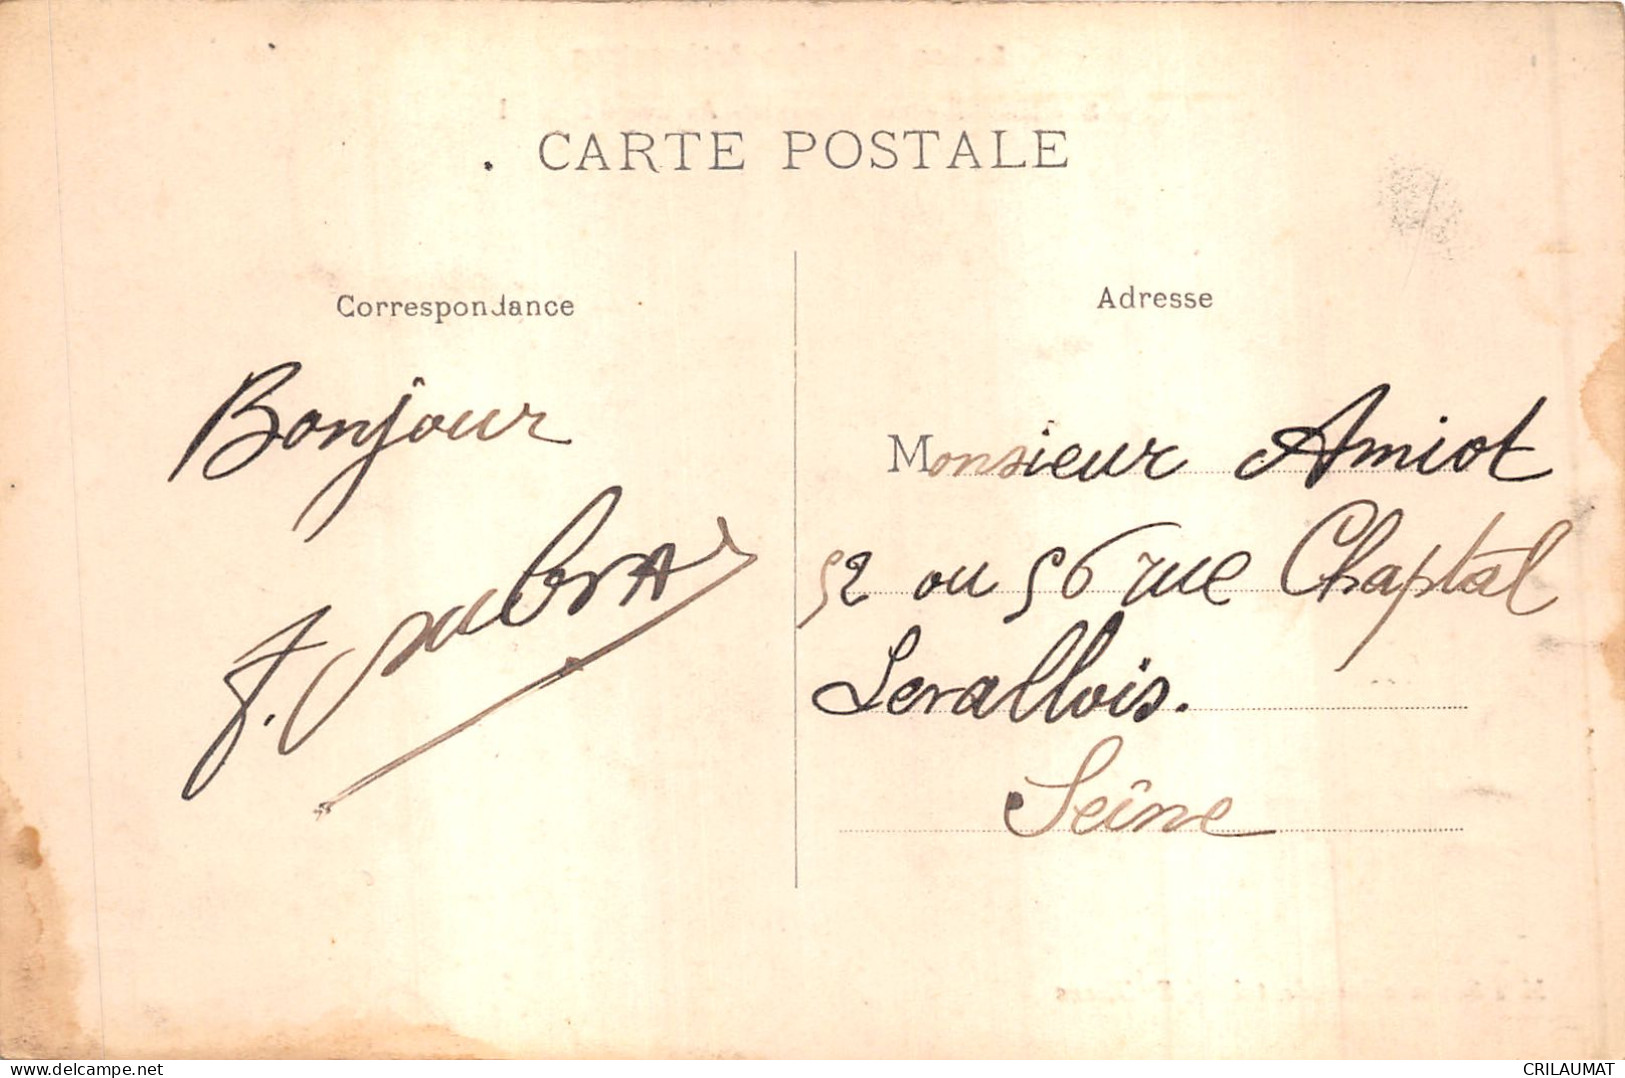 CARTE POSTALE
Correspondance
Bonjour
Adresse
Monsieur Amiot
52 ou 56 rue Chaptal
Levallois.
Seine
www.delcampe.net
CRILAUMAT